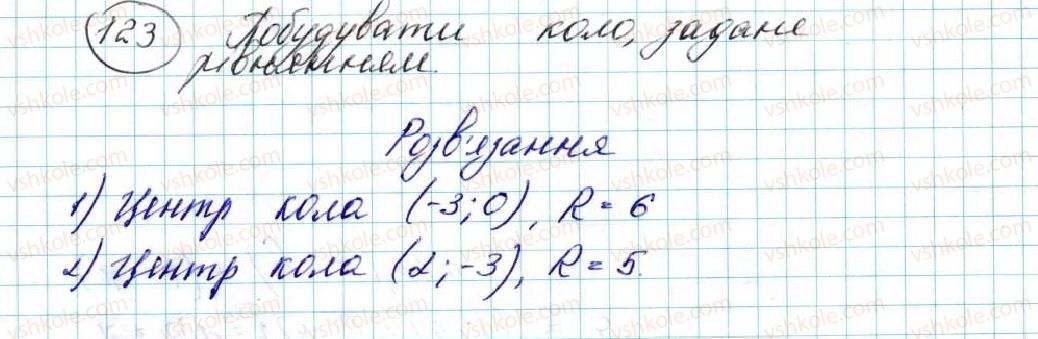 123 Побудувати коло, задане
рівнянням.
Розв'язання
1) Центр кола (-3; 0), R = 6
2) Центр кола (2; -3), R = 5.